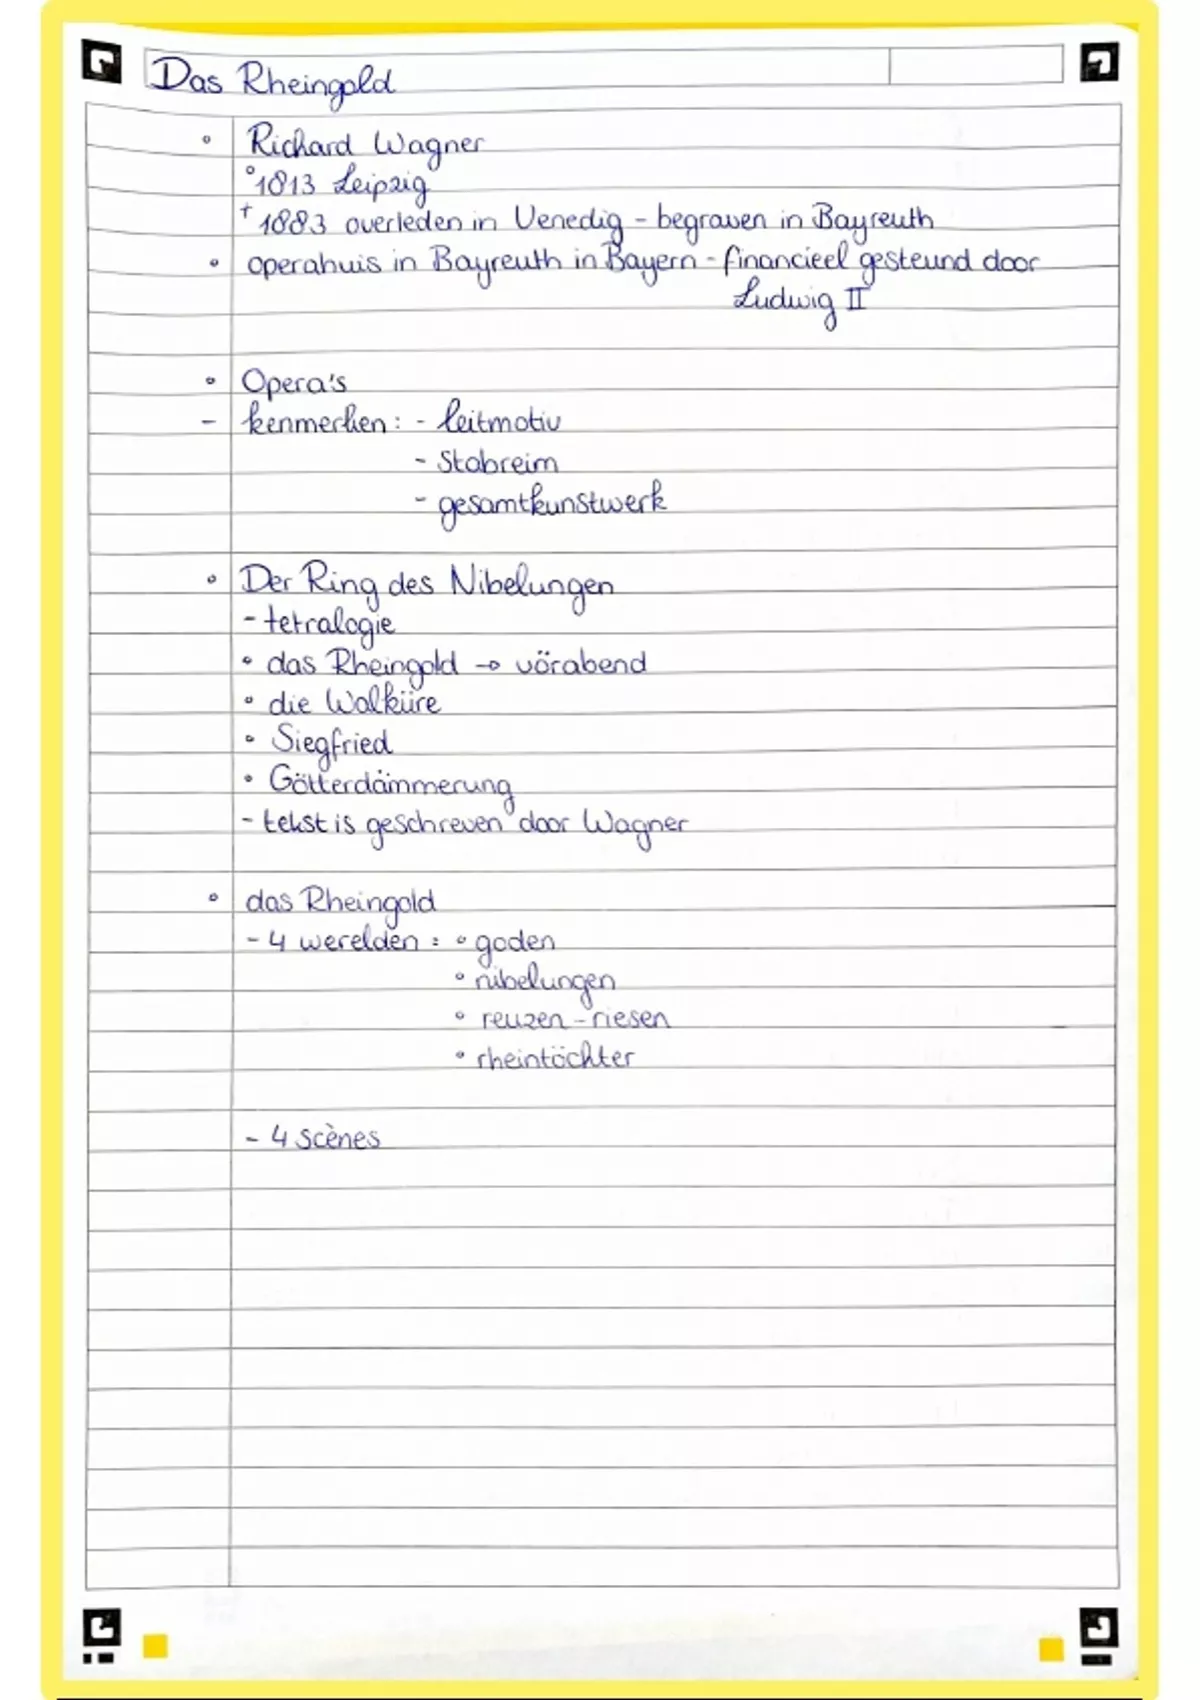 Das Rheingold
° Richard Wagner
°1813 Leipzig
† 1883 overleden in Venedig - begraven in Bayreuth
° operahuis in Bayreuth in Bayern - financieel gesteund door
Ludwig II
° Opera's
- kenmerken : - leitmotiv
- Stabreim
- gesamtkunstwerk
° Der Ring des Nibelungen
- tetralogie
• das Rheingold → vörabend
• die Walküre
• Siegfried
• Götterdämmerung
- tekst is geschreven door Wagner
° das Rheingold
- 4 werelden : ° goden
° nibelungen
° reuzen - riesen
° rheintöchter
- 4 scènes